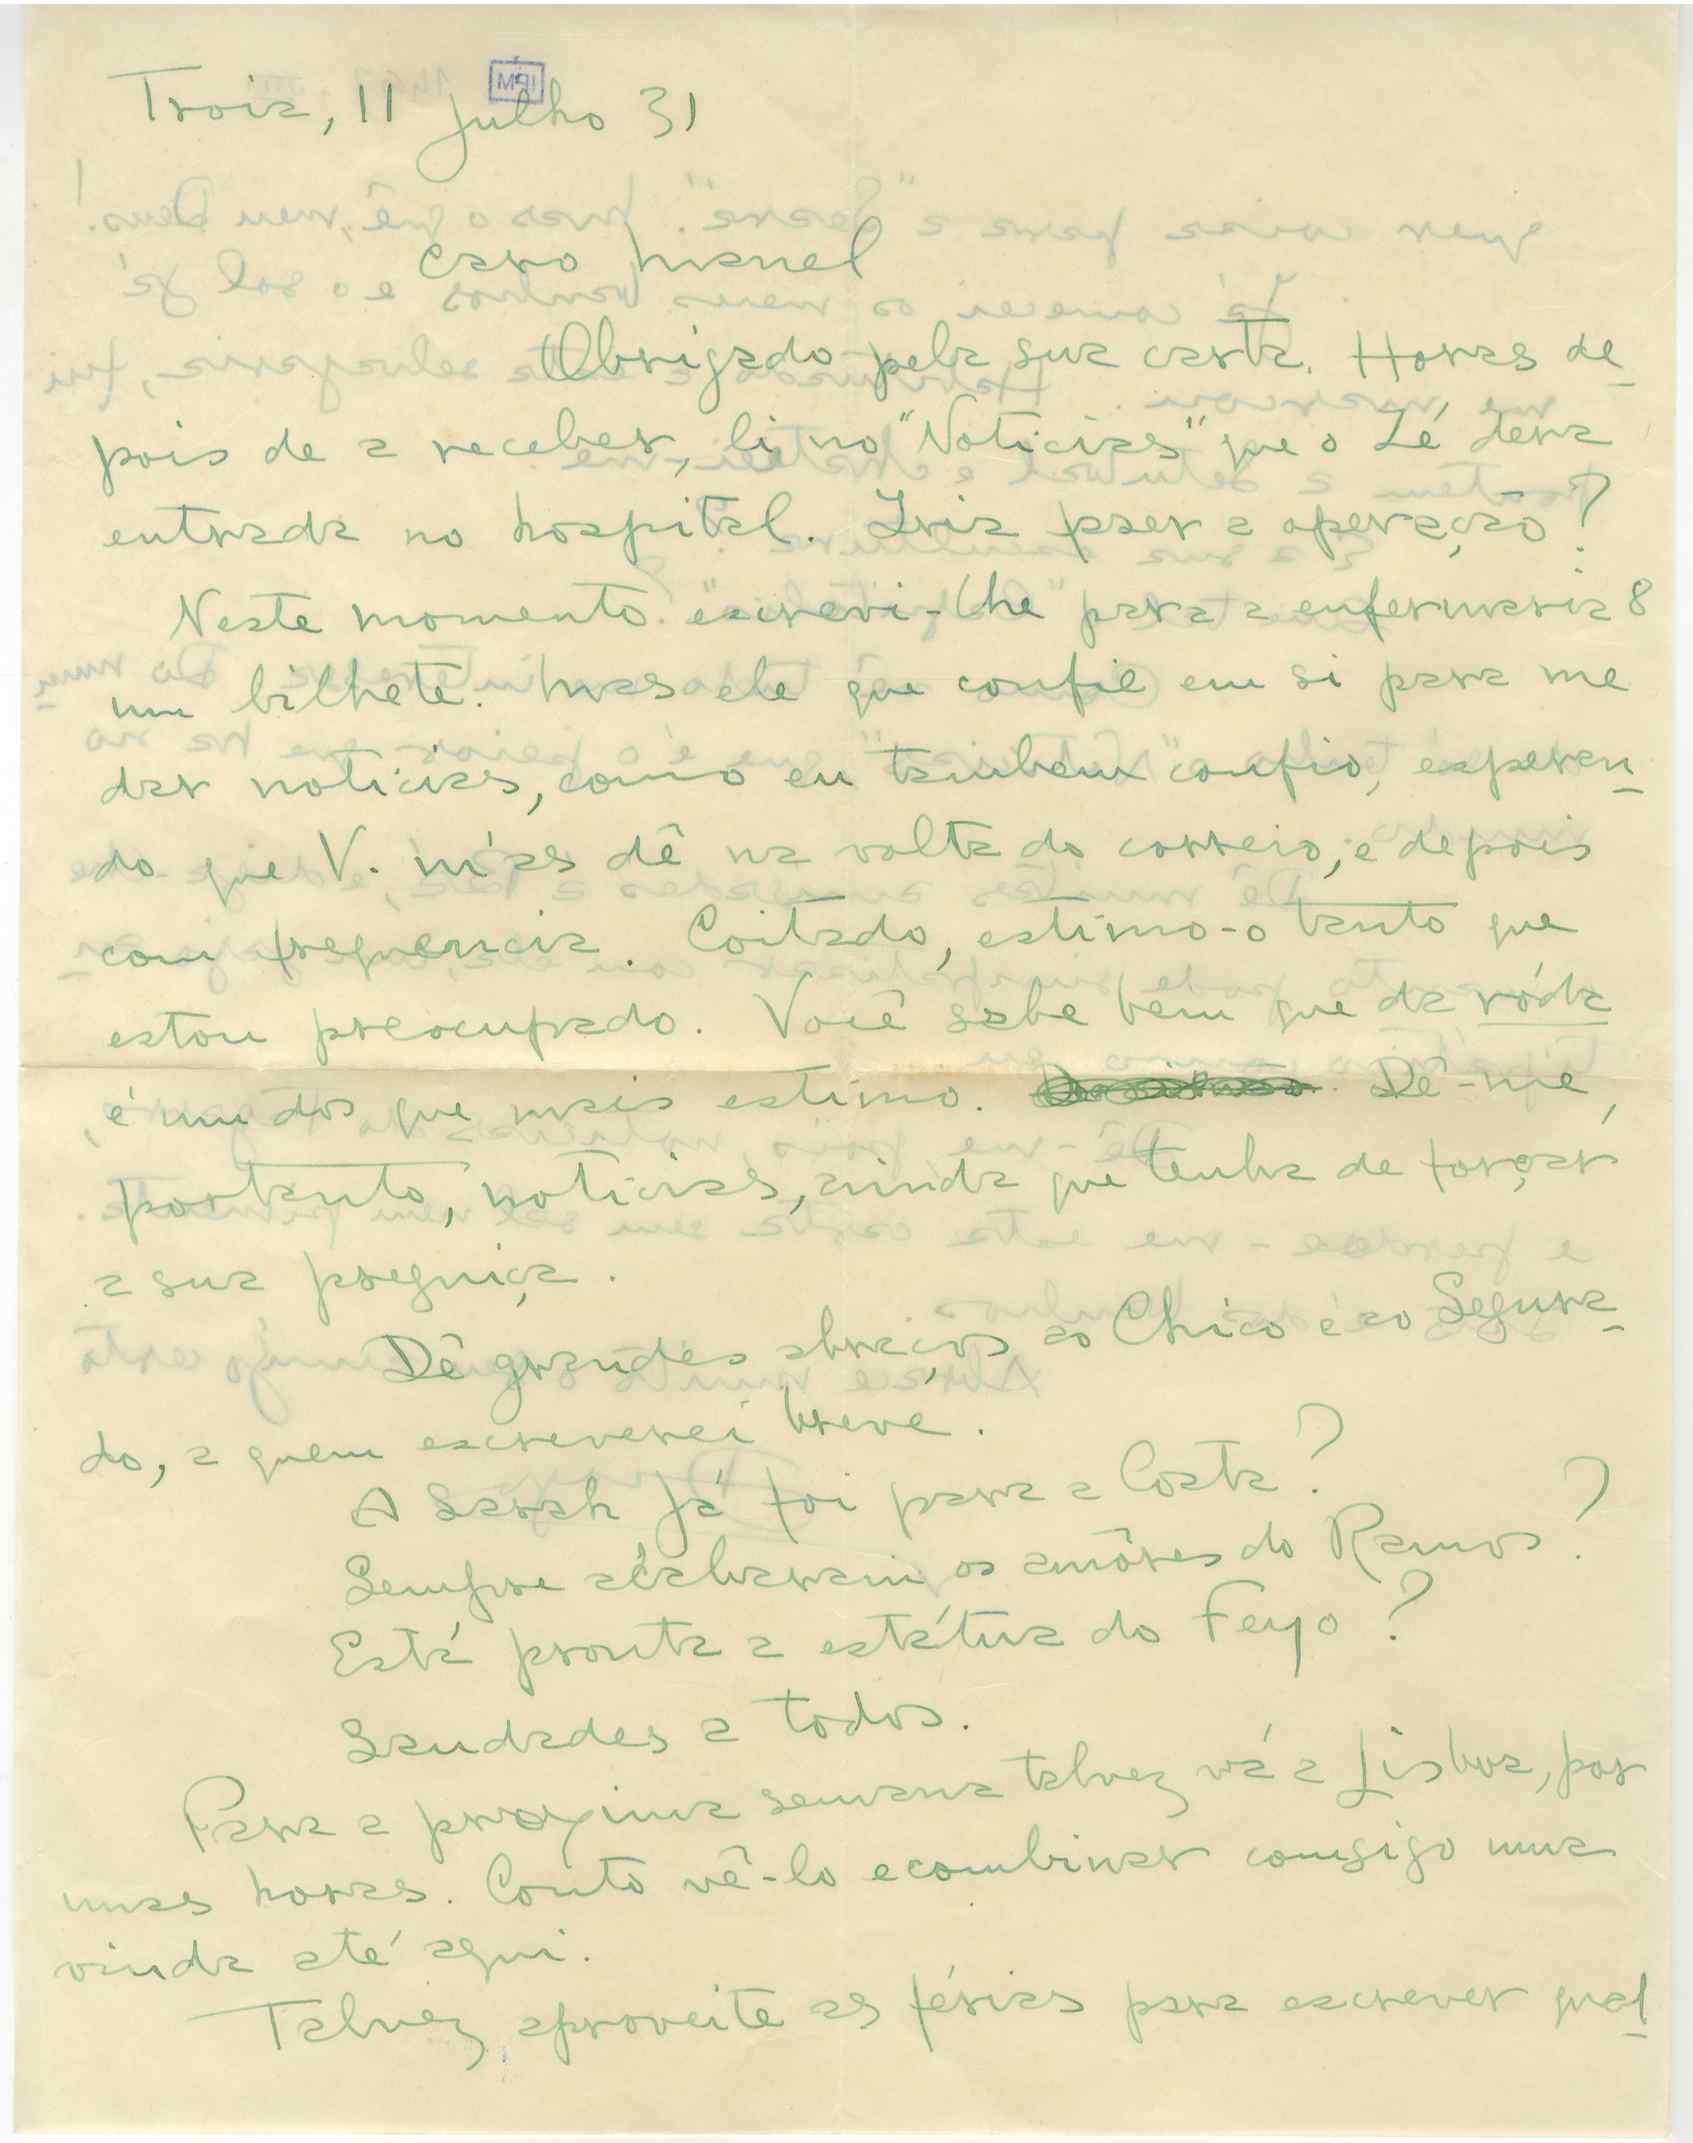 Troia, 11 Julho 31
Caro Manel
Obrigado pela sua carta. Horas de-
pois de a receber, li no "Noticias" que o Zé dera
entrada no hospital. Iria fazer a operação?
Neste momento escrevi-lhe para a enfermaria 8
um bilhete. Mas ele que confie em si para me
dar noticias, como eu tambem confio, esperan-
do que V. m'as dê na volta do correio, e depois
com frequencia. Coitado, estimo-o tanto que
estou preocupado. Você sabe bem que da róda
é um dos que mais estimo. Dê-me,
portanto, noticias, ainda que tenha de forçar
a sua preguiça.
Dê grandes abraços ao Chico e ao Segura-
do, a quem escreverei breve.
A Sarah já foi para a Costa?
Sempre acabaram os amôres do Ramos?
Está pronta a estátua do Feyo?
Saudades a todos.
Para a proxima semana talvez vá a Lisboa, por
umas horas. Conto vê-lo e combinar comsigo uma
vinda até aqui.
Talvez aproveite as férias para escrever qual-